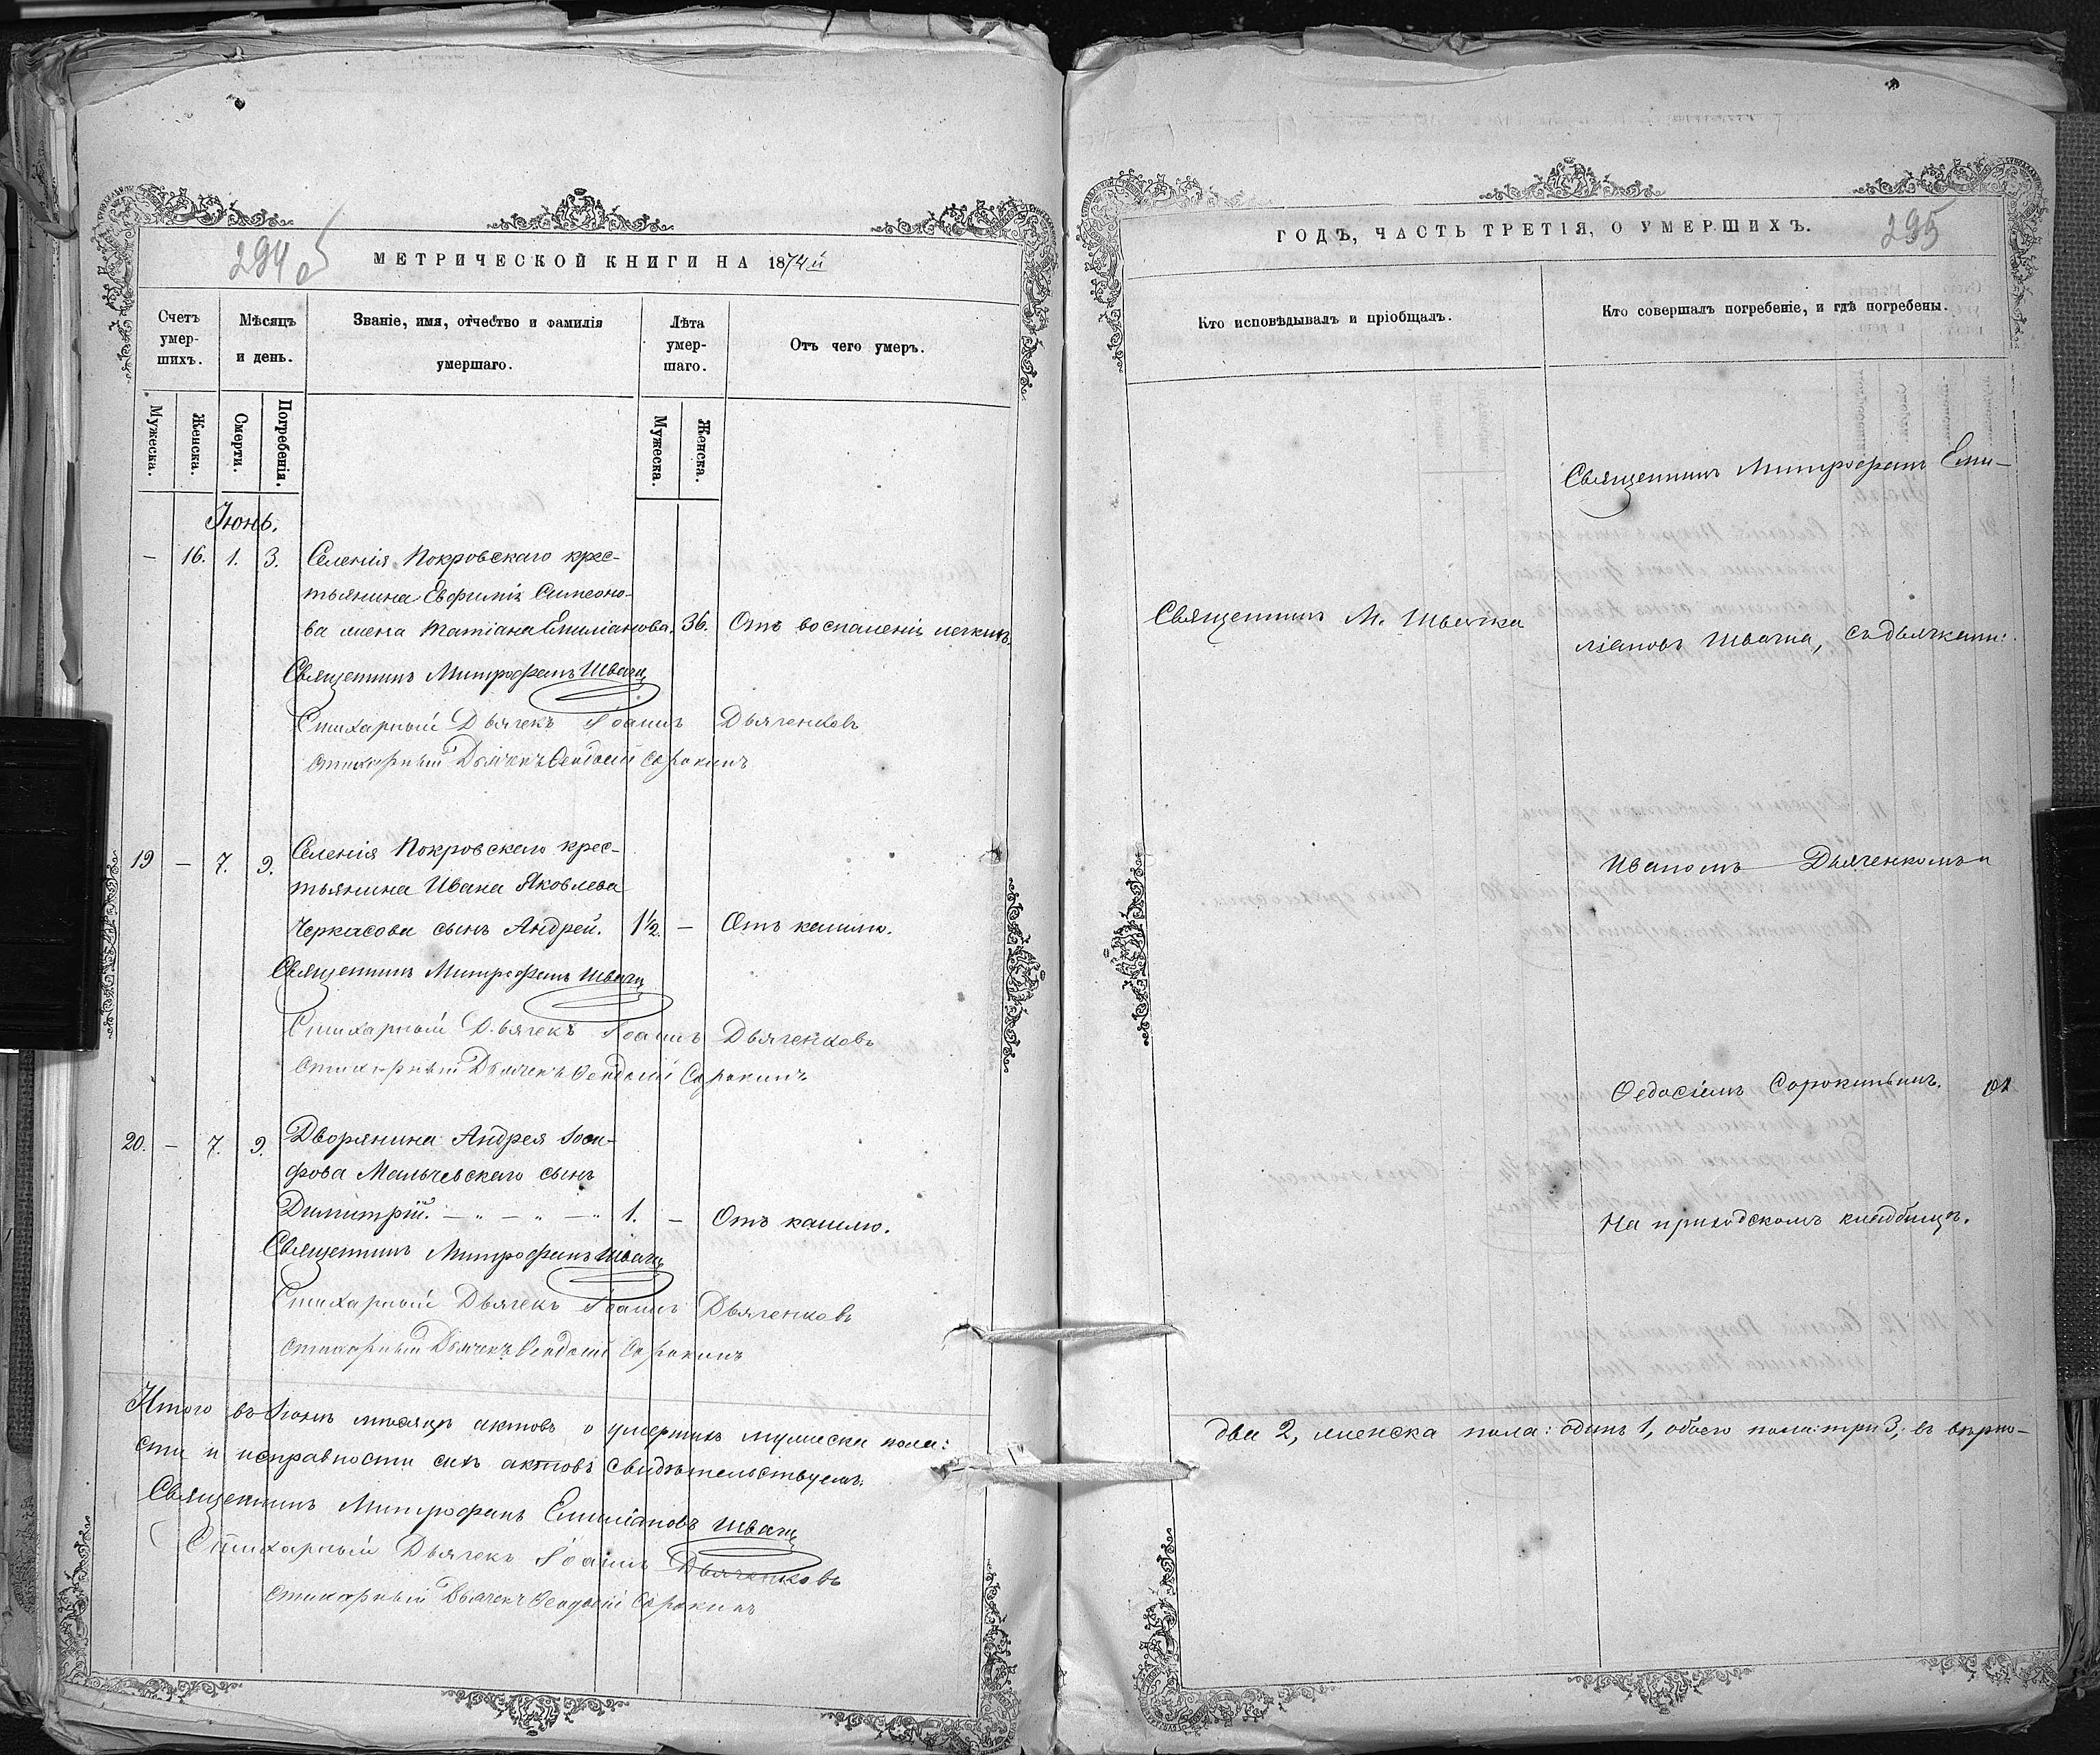 294 об
МЕТРИЧЕСКОЙ КНИГИ НА 1874й
Счетъ умер-шихъ.
Мѣсяцъ и день.
Званіе, имя, отчество и фамилія умершаго.
Лѣта умер-шаго.
Отъ чего умеръ.
Мужеска.
Женска.
Смерти.
Погребенія.
Мужеска.
Женска.
Іюнь.
— 16. 1. 3. Селенія Покровскаго крес-
тьянина Евфимія Симеоно-
ва жена Татіана Емиліанова. 36. Отъ воспаленія легкихъ.
Священникъ Митрофанъ Швачка
Стихарный Дьячекъ Іоаннъ Дьяченковъ
Стихарный Дьячекъ Ѳеодосій Сорокинъ
19 — 7. 9. Селенія Покровскаго крес-
тьянина Ивана Яковлева
Черкасова сынъ Андрей. 1½. — Отъ кашлю.
Священникъ Митрофанъ Швачка
Стихарный Дьячекъ Іоаннъ Дьяченковъ
Стихарный Дьячекъ Ѳеодосій Сорокинъ
20. — 7. 9. Дворянина Андрея Іоси-
фова Мальчевскаго сынъ
Димитрій. — „ — „ — „ 1. — Отъ кашлю.
Священникъ Митрофанъ Швачка
Стихарный Дьячекъ Іоаннъ Дьяченковъ
Стихарный Дьячекъ Ѳеодосій Сорокинъ
Итого въ Іюнѣ мѣсяцѣ актовъ о умершихъ мужеска пола:
сти и исправности сихъ актовъ свидѣтельствуемъ.
Священникъ Митрофанъ Емиліановъ Швачка
Стихарный Дьячекъ Іоаннъ Дьяченковъ
Стихарный Дьячекъ Ѳеодосій Сорокинъ
ГОДЪ, ЧАСТЬ ТРЕТІЯ, О УМЕРШИХЪ.
295
Кто исповѣдывалъ и пріобщалъ.
Кто совершалъ погребеніе, и гдѣ погребены.
Священникъ Митрофанъ Еми-
Священникъ М. Швачка
ліановъ Швачка, съ дьячками:
Иваномъ Дьяченкомъ и
Ѳедосіемъ Сорокинымъ.
На приходскомъ кладбищѣ.
два 2, женска пола: одинъ 1, обоего пола: три 3; въ вѣрно-